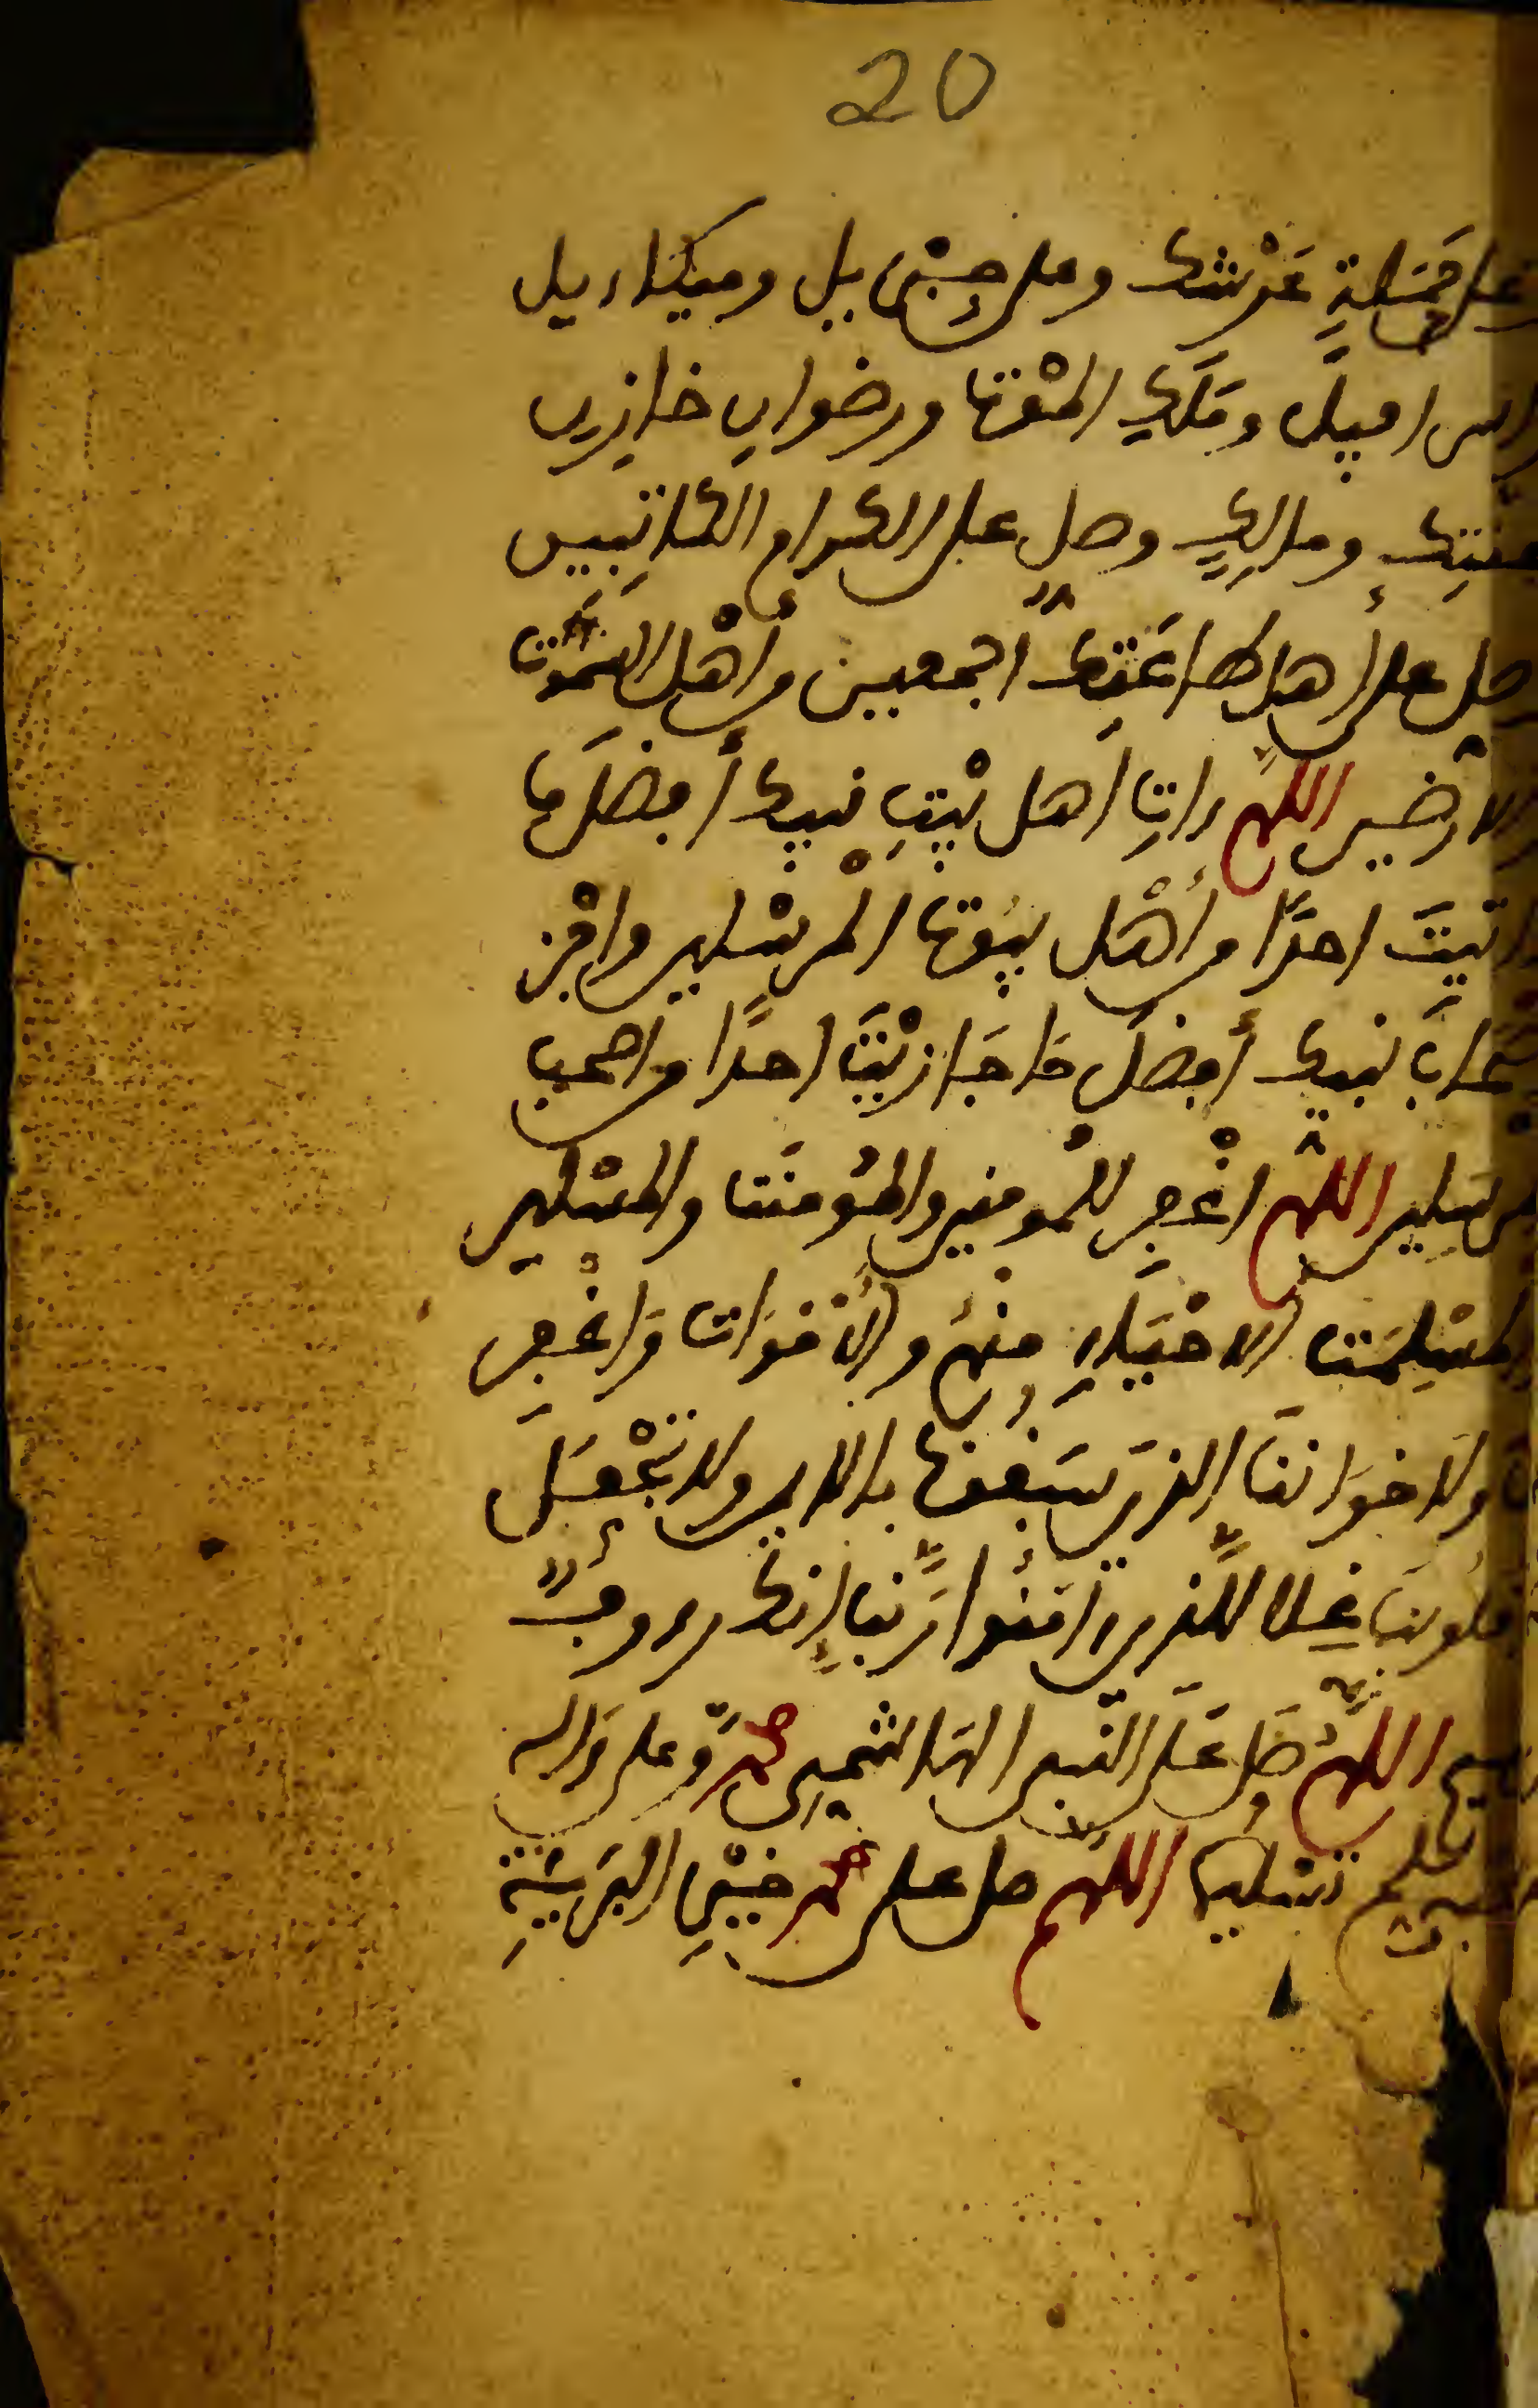 20
على حملة عرشك وعلى جبريل وميكاءيل
واسرافيل وملك الموت ورضوان خازن
جنتك ومالك وصل على الكرام الكاتبين
وصل على أهل طاعتك اجمعين وأهل السموت
والارضين اللهم ءات اهل بيت نبيك أفضل ما
اتيت احدا وأهل بيوت المرسلين واجز
اصحاب نبيك أفضل ما جازيت احدا واصحب
المرسلين اللهم اغفر للمومنين والمؤمنت والمسلمين
والمسلمت الاحياء منهم والأموات واغفر
ولاخواننا الذين سبقونا بالايمن ولا تجعل
قلوبنا غلا للذين ءامنوا ربنا إنك رءوف
رحيم اللهم صل على النبى الهاشمي محمد وعلى ءاله
وسلم تسليما اللهم صل على محمد خير البرية